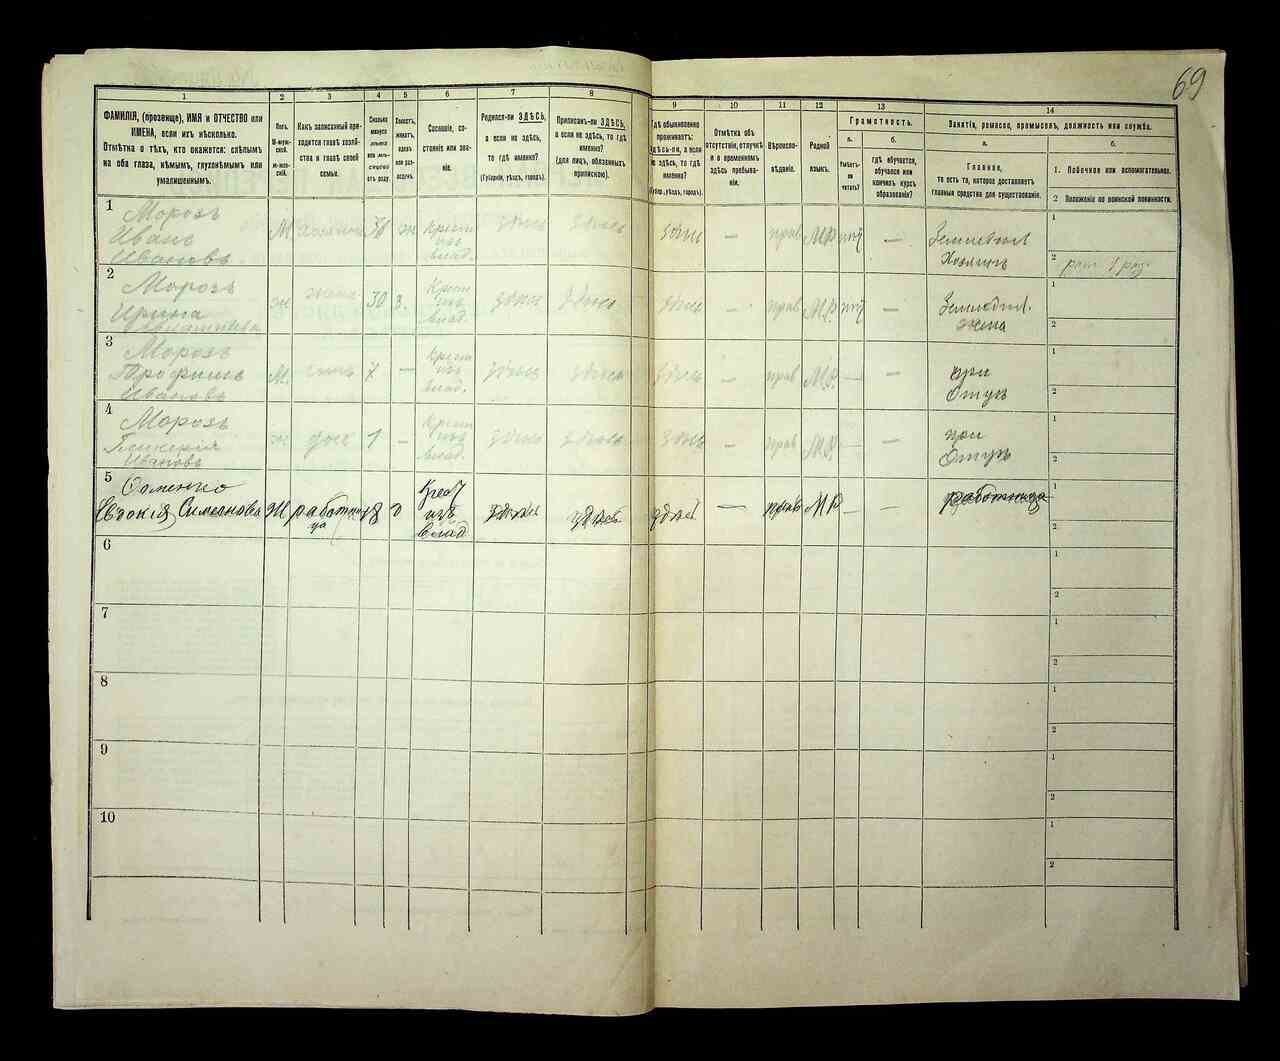 69
1
2
3
4
5
6
7
8
9
10
11
12
13
14
ФАМИЛІЯ, (прозвище), ИМЯ и ОТЧЕСТВО или
ИМЕНА, если ихъ нѣсколько.
Отмѣтка о тѣхъ, кто окажется: слѣпымъ
на оба глаза, нѣмымъ, глухонѣмымъ или
умалишеннымъ.
Полъ.
М-муж-
ской.
Ж-жен-
скій.
Какъ записанный при-
ходится главѣ хозяй-
ства и главѣ своей
семьи.
Сколько
минуло
лѣтъ
или мѣ-
сяцевъ
отъ роду.
Холостъ,
женатъ,
вдовъ
или раз-
веденъ.
Сословіе, со-
стояніе или зва-
ніе.
Родился-ли ЗДѢСЬ,
а если не здѣсь,
то гдѣ именно?
(Губернія, уѣздъ, городъ).
Приписанъ-ли ЗДѢСЬ,
а если не здѣсь, то гдѣ
именно?
(для лицъ, обязанныхъ
припискою).
Гдѣ обыкновенно
проживаетъ:
здѣсь-ли, а если
не здѣсь, то гдѣ
именно?
(Губер.,уѣздъ, городъ).
Отмѣтка объ
отсутствіи, отлучкѣ
и о временномъ
здѣсь пребыва-
ніи.
Вѣроиспо-
вѣданіе.
Родной
языкъ.
Грамотность.
а.
б.
Умѣетъ-
ли
читать?
гдѣ обучается,
обучался или
кончилъ курсъ
образованія?
Занятіе, ремесло, промыселъ, должность или служба.
а.
б.
Главное,
то есть то, которое доставляетъ
главныя средства для существованія.
1. Побочное или вспомогательное.
2 Положеніе по воинской повинности.
1
Морозъ
Иванъ
Ивановъ
М
38
ж
Крест
изъ
влад.
здѣсь
здѣсь
здѣсь
—
прав
М.Р.
—
Земледѣл
Хозяинъ
1
2
2
Морозъ
Ирина
ж
жена
30
з.
Крест
изъ
влад.
здѣсь
здѣсь
здѣсь
—
прав
М.Р.
—
Земледѣл.
жена
1
2
3
Морозъ
Трофимъ
Ивановъ
М.
сынъ
7
—
Крест
изъ
влад.
здѣсь
здѣсь
здѣсь
—
прав
М.Р.
—
—
при
Отцѣ
1
2
4
Морозъ
Ивановъ
ж
доч
1
—
Крест
изъ
влад.
здѣсь
здѣсь
здѣсь
—
прав
М.Р.
—
—
при
Отцѣ
1
2
5
Евдокія Симеонова
Ж
работни
ца
18
Крест
изъ
влад
здѣсь
здѣсь
здѣсь
—
прав
М.Р.
—
—
работница
1
2
6
1
2
7
1
2
8
1
2
9
1
2
10
1
2